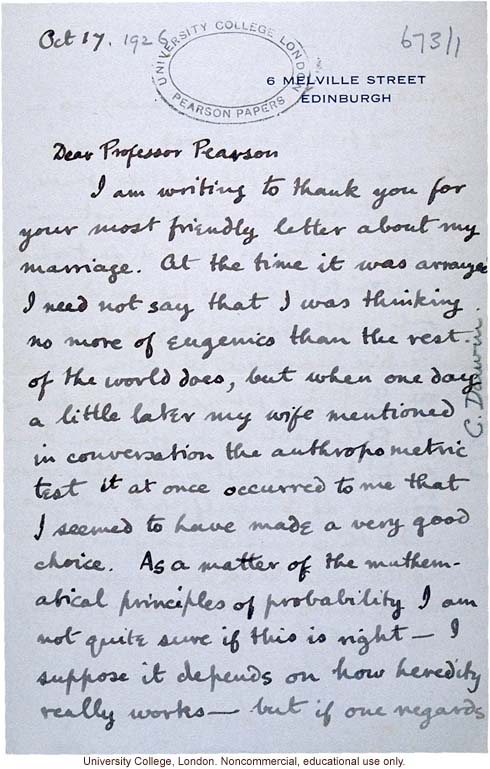 Oct 17. 1926
673/1
UNIVERSITY COLLEGE LONDON
PEARSON PAPERS
6 MELVILLE STREET
EDINBURGH
Dear Professor Pearson
I am writing to thank you for
your most friendly letter about my
marriage. At the time it was arranged
I need not say that I was thinking
no more of eugenics than the rest
of the world does, but when one day
a little later my wife mentioned
in conversation the anthropometric
test it at once occurred to me that
I seemed to have made a very good
choice. As a matter of the mathem-
atical principles of probability I am
not quite sure if this is right — I
suppose it depends on how heredity
really works — but if one regards
C. Darwin.
University College, London. Noncommercial, educational use only.